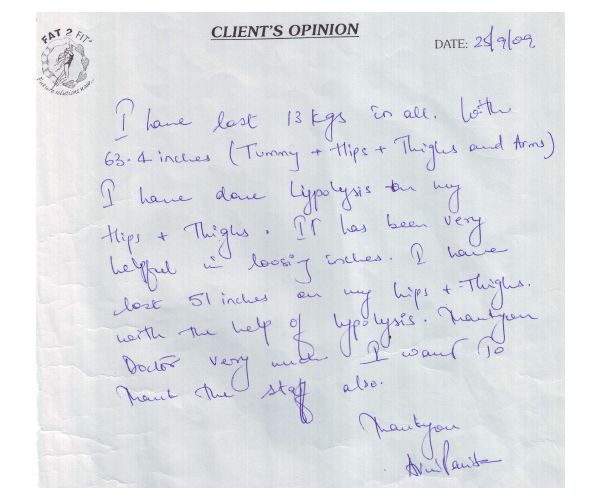 FAT 2 FIT
CLIENT'S OPINION
DATE: 25/9/09
I have lost 13 kgs in all. With
63.4 inches (Tummy + Hips + Thighs and Arms)
I have done Lypolysis on my
Hips + Thighs. It has been very
helpful in loosing inches. I have
lost 51 inches on my hips + Thighs.
with the help of lypolysis. Thankyou
Doctor very much I want to
Thank the staff also.
Thankyou